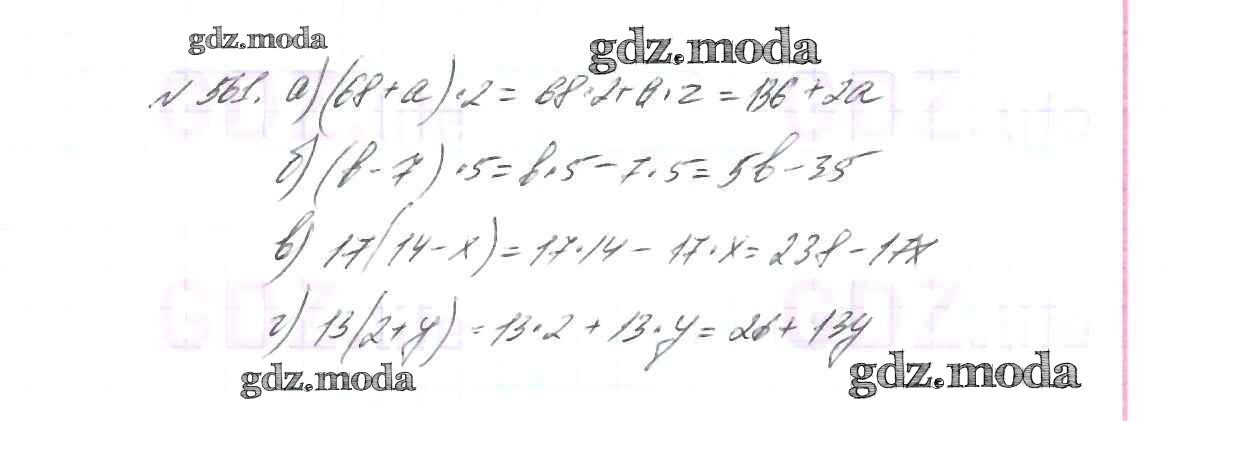 gdz.moda gdz.moda
№ 561. а) (68 + a) · 2 = 68 · 2 + a · 2 = 136 + 2a
б) (b - 7) · 5 = b · 5 - 7 · 5 = 5b - 35
в) 17(14 - x) = 17 · 14 - 17 · x = 238 - 17x
г) 13(2 + y) = 13 · 2 + 13 · y = 26 + 13y
gdz.moda gdz.moda